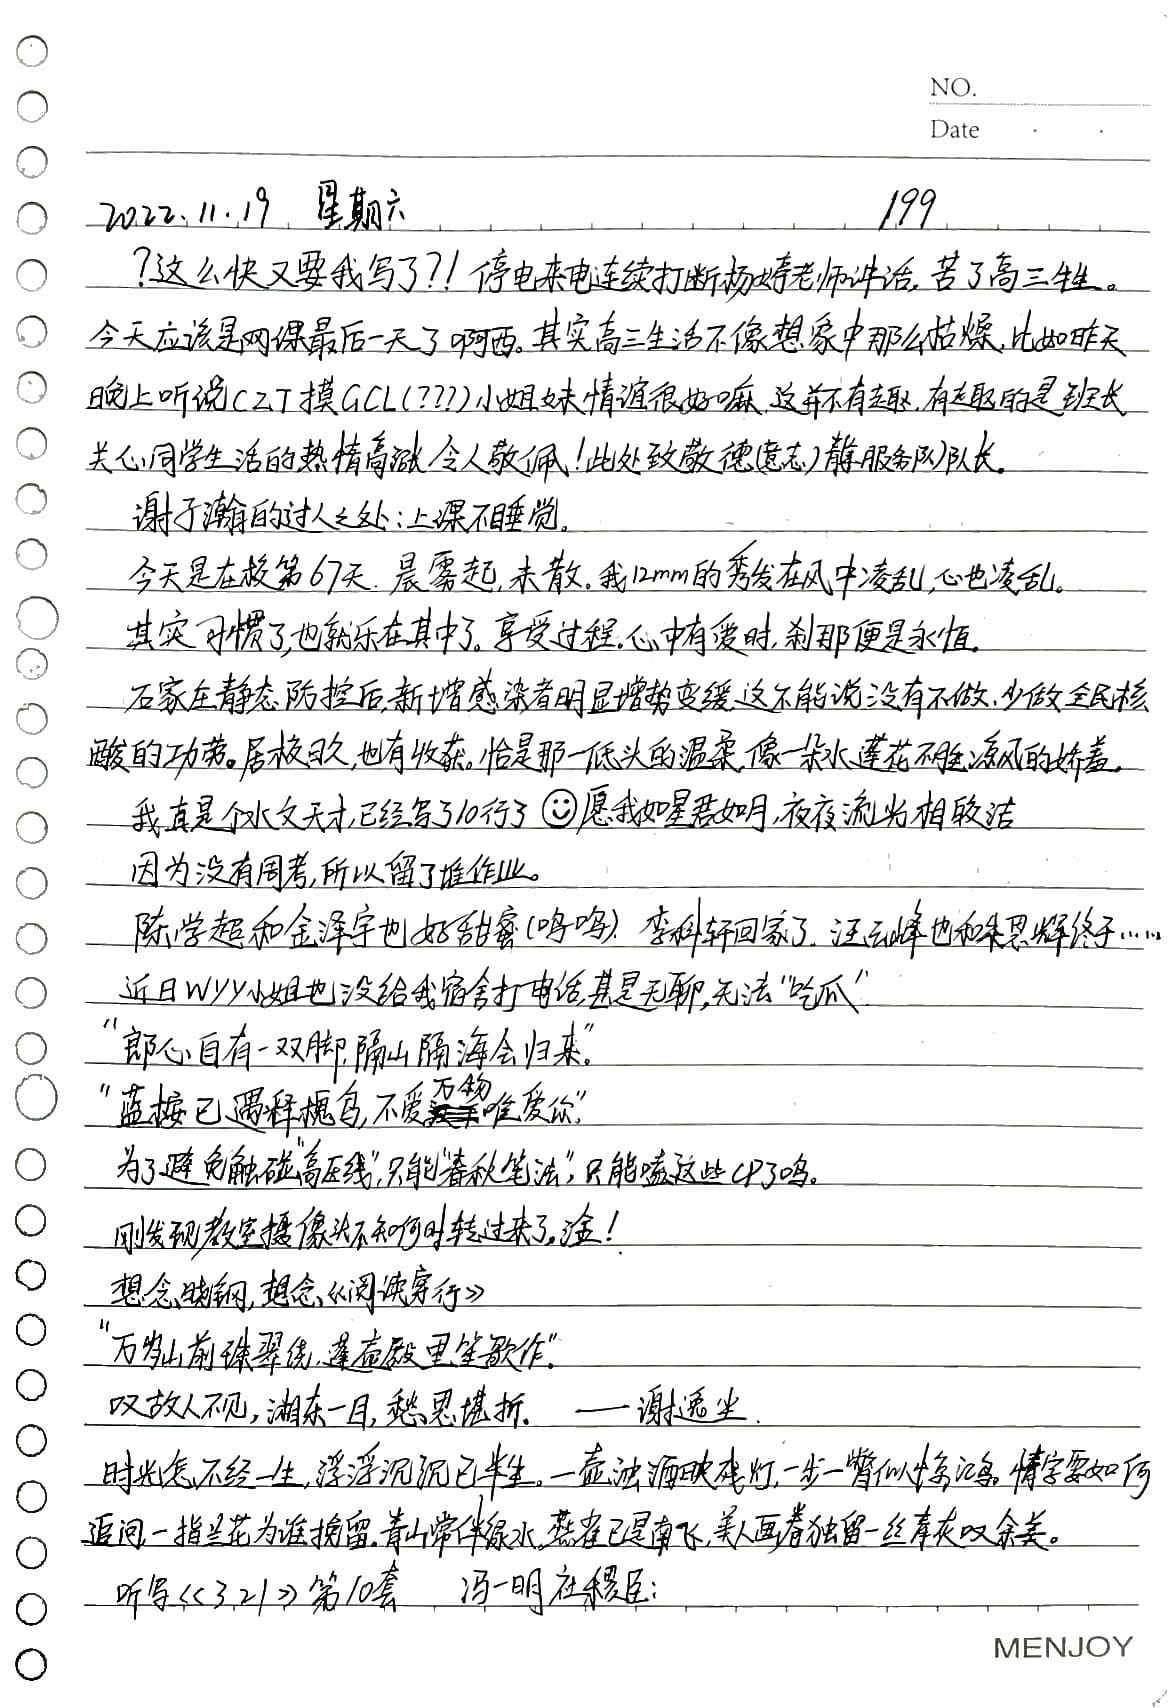 NO.
Date
2022.11.19 星期六 199
?这么快又要我写了?!停电来电连续打断杨婷老师讲话,苦了高三牲。
今天应该是网课最后一天了啊西。其实高三生活不像想象中那么枯燥,比如昨天
晚上听说CZT摸GCL(???)小姐妹情谊很好嘛,这并不有趣,有趣的是班长
关心同学生活的热情高涨,令人敬佩!此处致敬德(意志)静服务队)队长。
谢子瀚的过人之处:上课不睡觉。
今天是在校第67天.晨雾起,未散。我12mm的秀发在风中凌乱,心也凌乱。
其实习惯了,也就乐在其中了。享受过程。心中有爱时,刹那便是永恒。
石家庄静态防控后,新增感染者明显增势变缓,这不能说没有不做、少做全民核
酸的功劳。居校日久,也有收获。恰是那一低头的温柔,像一朵水莲花不胜凉风的娇羞。
我真是个水文天才,已经写了10行了 愿我如星君如月,夜夜流光相皎洁
因为没有周考,所以留了堆作业。
陈学超和金泽宇也好甜蜜(呜呜) 李科轩回家了.汪云峰也和朱思辉终于……
近日WYY小姐也没给我宿舍打电话,甚是无聊,无法“吃瓜”
“郎心自有一双脚,隔山隔海会归来”。
“蓝桉已遇释槐鸟,不爱万物唯爱你”
为了避免触碰“高压线”,只能“春秋笔法”,只能嗑这些CP了呜。
刚发现教室摄像头不知何时转过来了。淦!
想念晓钢,想念《阅读穿行》
“万岁山前珠翠绕,蓬壶殿里笙歌作”。
叹故人不见,湖东一目,愁思堪折. ——谢逸尘.
时光怎不经一生,浮浮沉沉已半生。一壶浊酒映残灯,一步一瞥似惊鸿.情字要如何
追问,一指兰花为谁挽留.青山常伴绿水,燕雀已是南飞,美人画卷独留一丝青灰叹余美。
听写《3,21》第10套 冯一明社稷臣:
MENJOY